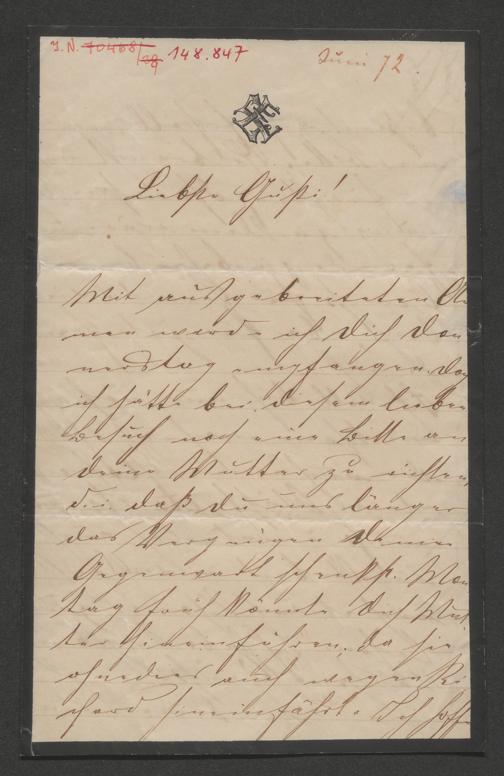 I.N. 70468/28 148.847
Juni 72.
Liebste Gusti!
Mit ausgebreiteten Ar
men werde ich Dich Don
nerstag empfangen. Doch
ich hätte bei diesem lieben
Besuch noch eine Bitte an
deine Mutter zu richten,
d. i. daß du uns länger
das Vergnügen deiner
Gegenwart schenkst. Mon
tag früh könnte dich Mut
ter hineinführen, da sie
ohnedies auch wegen Ri
chard hineinfährt. Ich hoffe